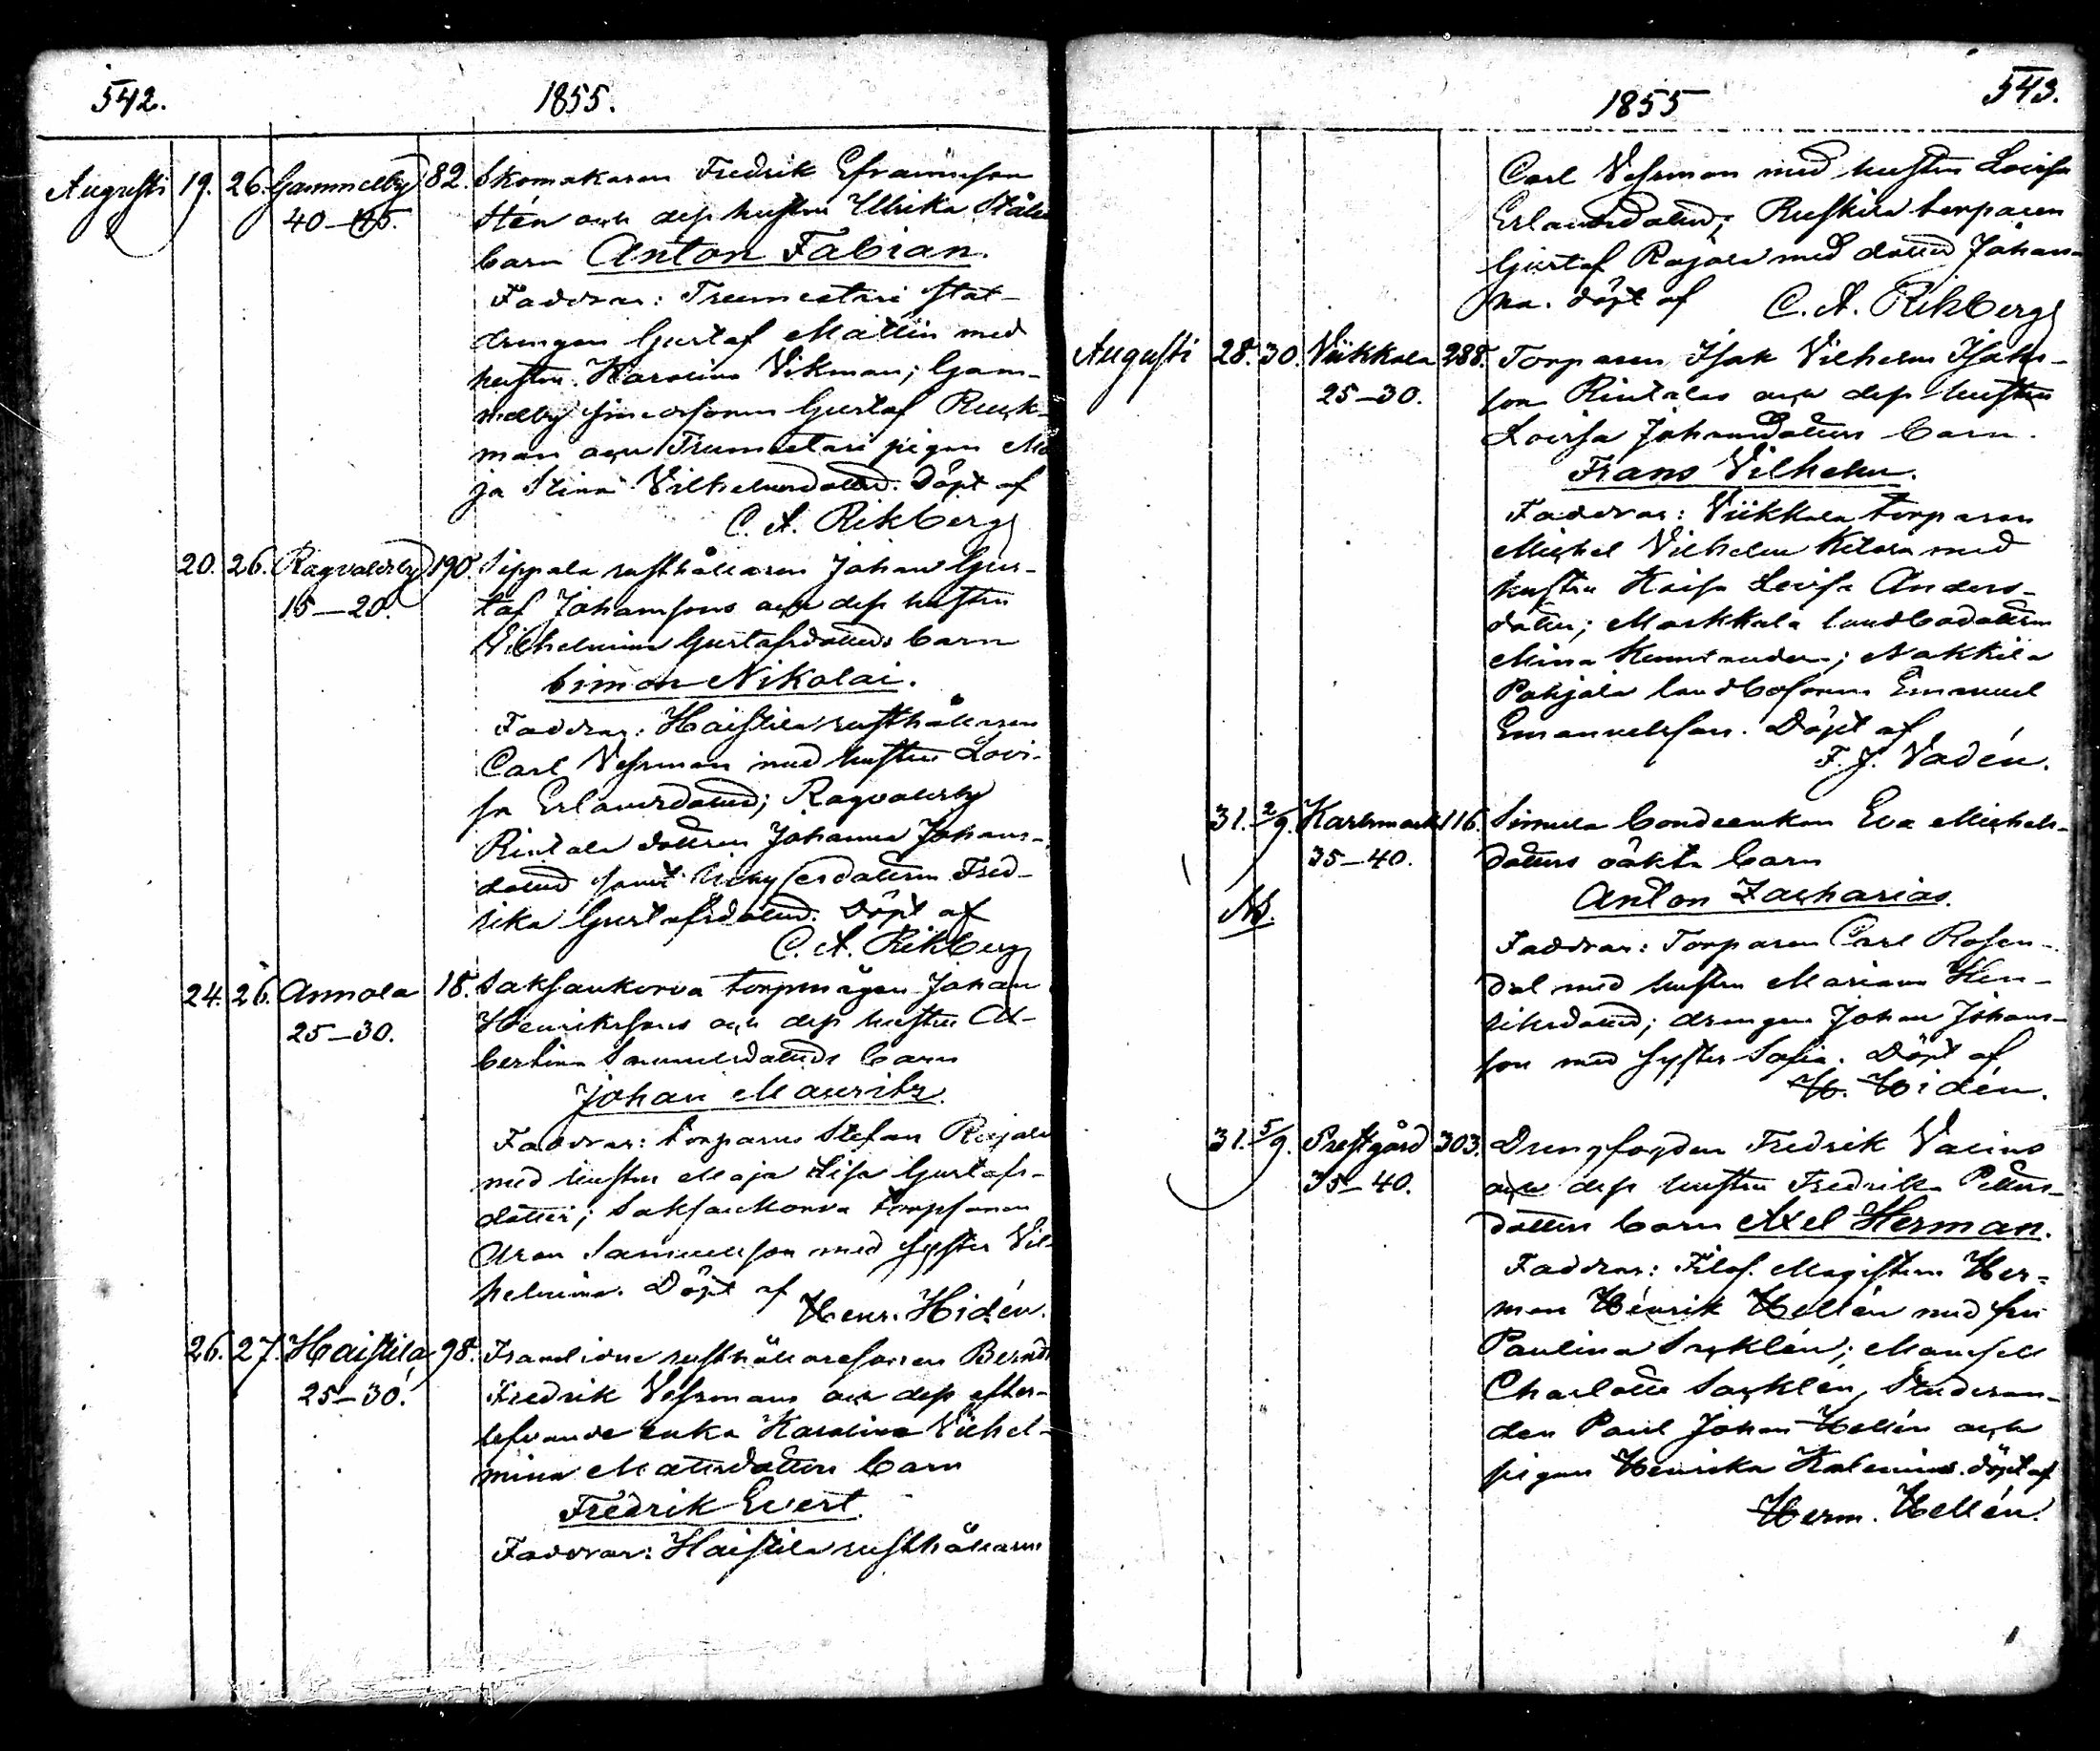 542.
1855.
Augusti 19. 26. Gammelby 82. Skomakaren Fredrik Efraimsson
40–45. Stén och dess hustru Ulrika Ståls
barn Anton Fabian.
Faddrar: Trumetari stat-
drengen Gustaf Mattiin med
hustru Karolina Vikman; Gam-
melby smedsonen Gustaf Ruck-
man och Trumetari pigan Ma
ja Stina Vilhelmsdotter. Döpt af
C. A. Rikberg
20. 26. Ragvaldsby 190. Sippala rusthållaren Johan Gus-
15–20. taf Johanssons och dess hustru
Vilhelmina Gustafsdotters barn
Simon Nikolai.
Faddrar: Haistila rusthållaren
Carl Vessman med hustru Lovi-
sa Erlandsdotter; Ragvaldsby
Rintala dottren Johanna Johans-
dotter samt dottren Fred-
rika Gustafsdotter. Döpt af
C. A. Rikberg
24. 26. Annola 18. Saksankorva torpmågen Johan
25–30. Henrikssons och dess hustru Al-
bertina Samuelsdotters barn
Johan Mauritz.
Faddrar: torparen Stefan Rojala
med hustru Maja Lisa Gustafs-
dotter; Saksankorva torpsonen
Aron Samuelsson med syster Vil-
helmina. Döpt af
Henr. Hidén.
26. 27. Haistila 98. Framlidne rusthållaresonen Berndt
25–30. Fredrik Vessmans och dess efter-
lefvande enka Karolina Vilhel-
mina Mattsdotters barn
Fredrik Evert.
Faddrar: Haistila rusthållaren
1855
543.
Carl Vessman med hustru Lovisa
Erlandsdotter; Ruskila torparen
Gustaf Rojala med dotter Johan-
na. Döpt af C. A. Rikberg
Augusti 28. 30. Viikkala 288. Torparen Isak Vilhelm Isaks-
25–30. son Rintalas och dess hustru
Lovisa Johansdotters barn
Frans Vilhelm.
Faddrar: Viikkala torparen
Michel Vilhelm Ketola med
hustru Kaisa Lovisa Anders-
dotter; Markkala landbodottren
Mina; Nakkila
Pohjala landbosonen Emanuel
Emanuelsson. Döpt af
F. J. Vadén.
31. 2/9. Karlsmark 116. Simula bondeenkan Eva Michels-
35–40. dotters oäkta barn
Anton Zacharias.
Faddrar: Torparen Carl Rosen-
dal med hustru Mariana Hen-
riksdotter; drengen Johan Johans-
son med syster Sofia. Döpt af
H. Hidén.
31. 5/9. Prestgård 303. Drengfogden Fredrik Valins
35–40. och dess hustru Fredrika Petters-
dotters barn Axel Herman.
Faddrar: Filos. Magistern Her-
man Henrik Hellén med fru
Paulina Sacklén; Mamsell
Charlotta Sacklén, Studeran-
den Paul Johan Hellén och
pigan Henrika Kalenius. Döpt af
Herm. Hellén.